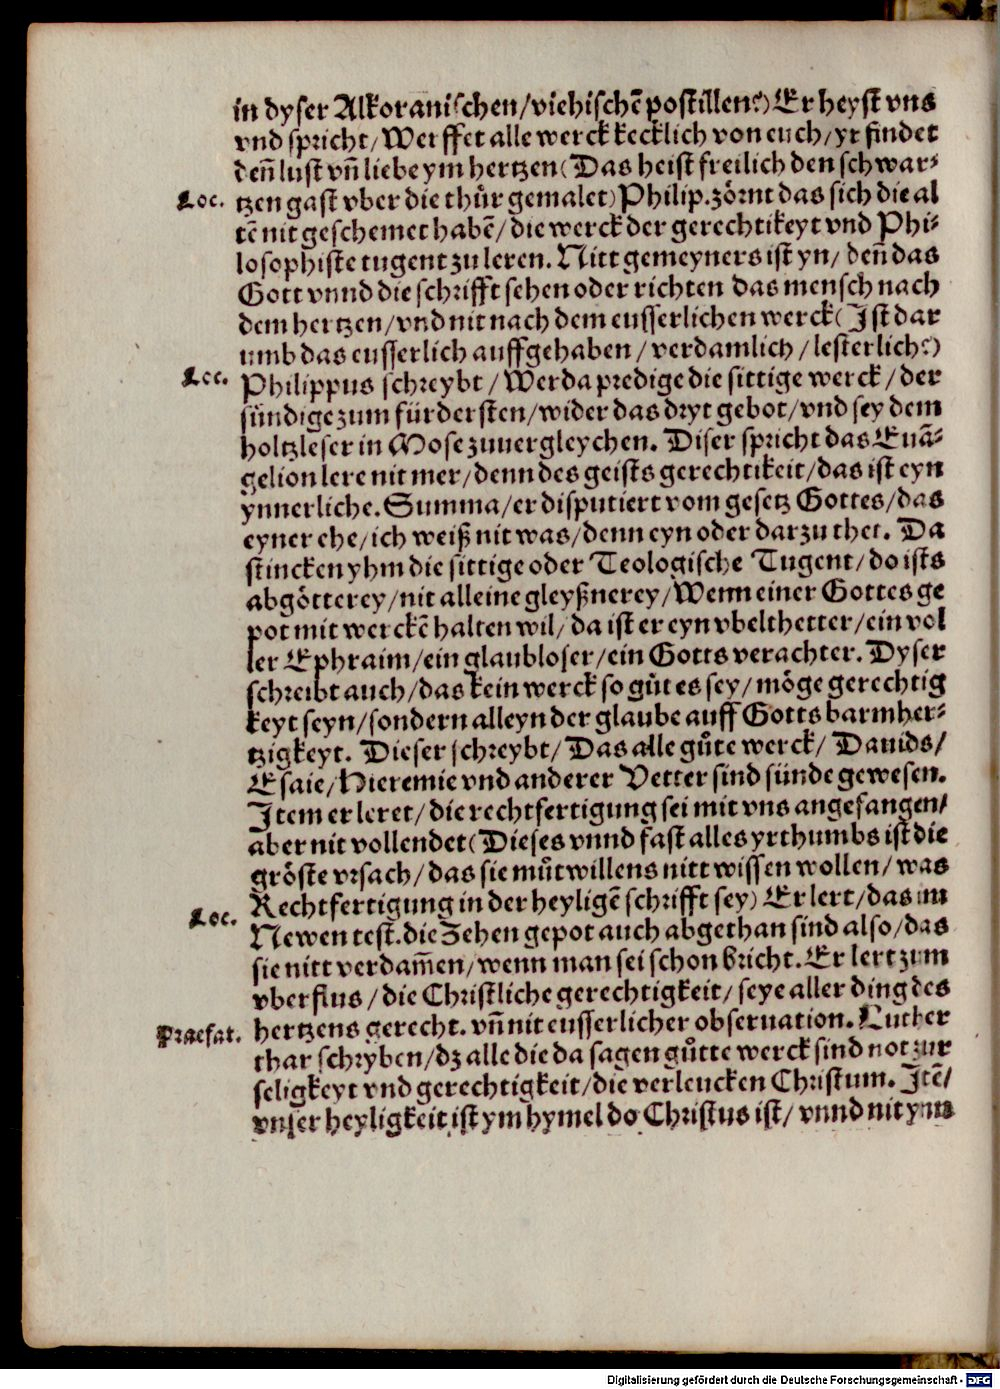 in dyser Alkoranischen/viehischē postillen?) Er heyst vns
vnd spricht/Werffet alle werck kecklich von euch/yr findet
deñ lust vñ liebe ym hertzen (Das heist freilich den schwar⸗
Loc.
tzen gast vber die thůr gemalet) Philip. zörnt das sich die al
tē nit geschemet habē/die werck der gerechtikeyt vnd Phi⸗
losophiste tugent zu leren. Nitt gemeyners ist yn/deñ das
Gott vnnd die schrifft sehen oder richten das mensch nach
dem hertzen/vnd nit nach dem eusserlichen werck (Ist dar
umb das eusserlich auffgehaben/verdamlich/lesterlich?)
Loc.
Philippus schreybt/Wer da predige die sittige werck/der
sündige zum fürdersten/wider das dryt gebot/vnd sey dem
holtzleser in Mose zuuergleychen. Diser spricht das Euā⸗
gelion lere nit mer/denn des geists gerechtikeit/das ist eyn
ynnerliche. Summa/er disputiert vom gesetz Gottes/das
eyner ehe/ich weiß nit was/denn eyn oder darzu thet. Da
stincken yhm die sittige oder Teologische Tugent/do ists
abgötterey/nit alleine gleyßnerey/Wenn einer Gottes ge
pot mit werckē halten wil/da ist er eyn vbelthetter/ein vol
ler Ephraim/ein glaubloser/ein Gotts verachter. Dyser
schreibt auch/das kein werck so gůt es sey/möge gerechtig
keyt seyn/sondern alleyn der glaube auff Gotts barmher⸗
tzigkeyt. Dieser schreybt/Das alle gůte werck/Dauids/
Esaie/Hieremie vnd anderer Vetter sind sünde gewesen.
Item er leret/die rechtfertigung sei mit vns angefangen/
aber nit vollendet (Dieses vnnd fast alles yrthumbs ist die
gröste vrsach/das sie můtwillens nitt wissen wollen/was
Rechtfertigung in der heyligē schrifft sey) Er lert/das im
Loc.
Newen test. die Zehen gepot auch abgethan sind also/das
sie nitt verdam̄en/wenn man sei schon bricht. Er lert zum
vberflus/die Christliche gerechtigkeit/seye aller ding des
Praefat.
hertzens gerecht. vñ nit eusserlicher obseruation. Luther
thar schryben/dz alle die da sagen gůtte werck sind not zur
seligkeyt vnd gerechtigkeit/die verleucken Christum. Itē/
vnser heyligkeit ist ym hymel do Christus ist/vnnd nit ynn
Digitalisierung gefördert durch die Deutsche Forschungsgemeinschaft - DFG